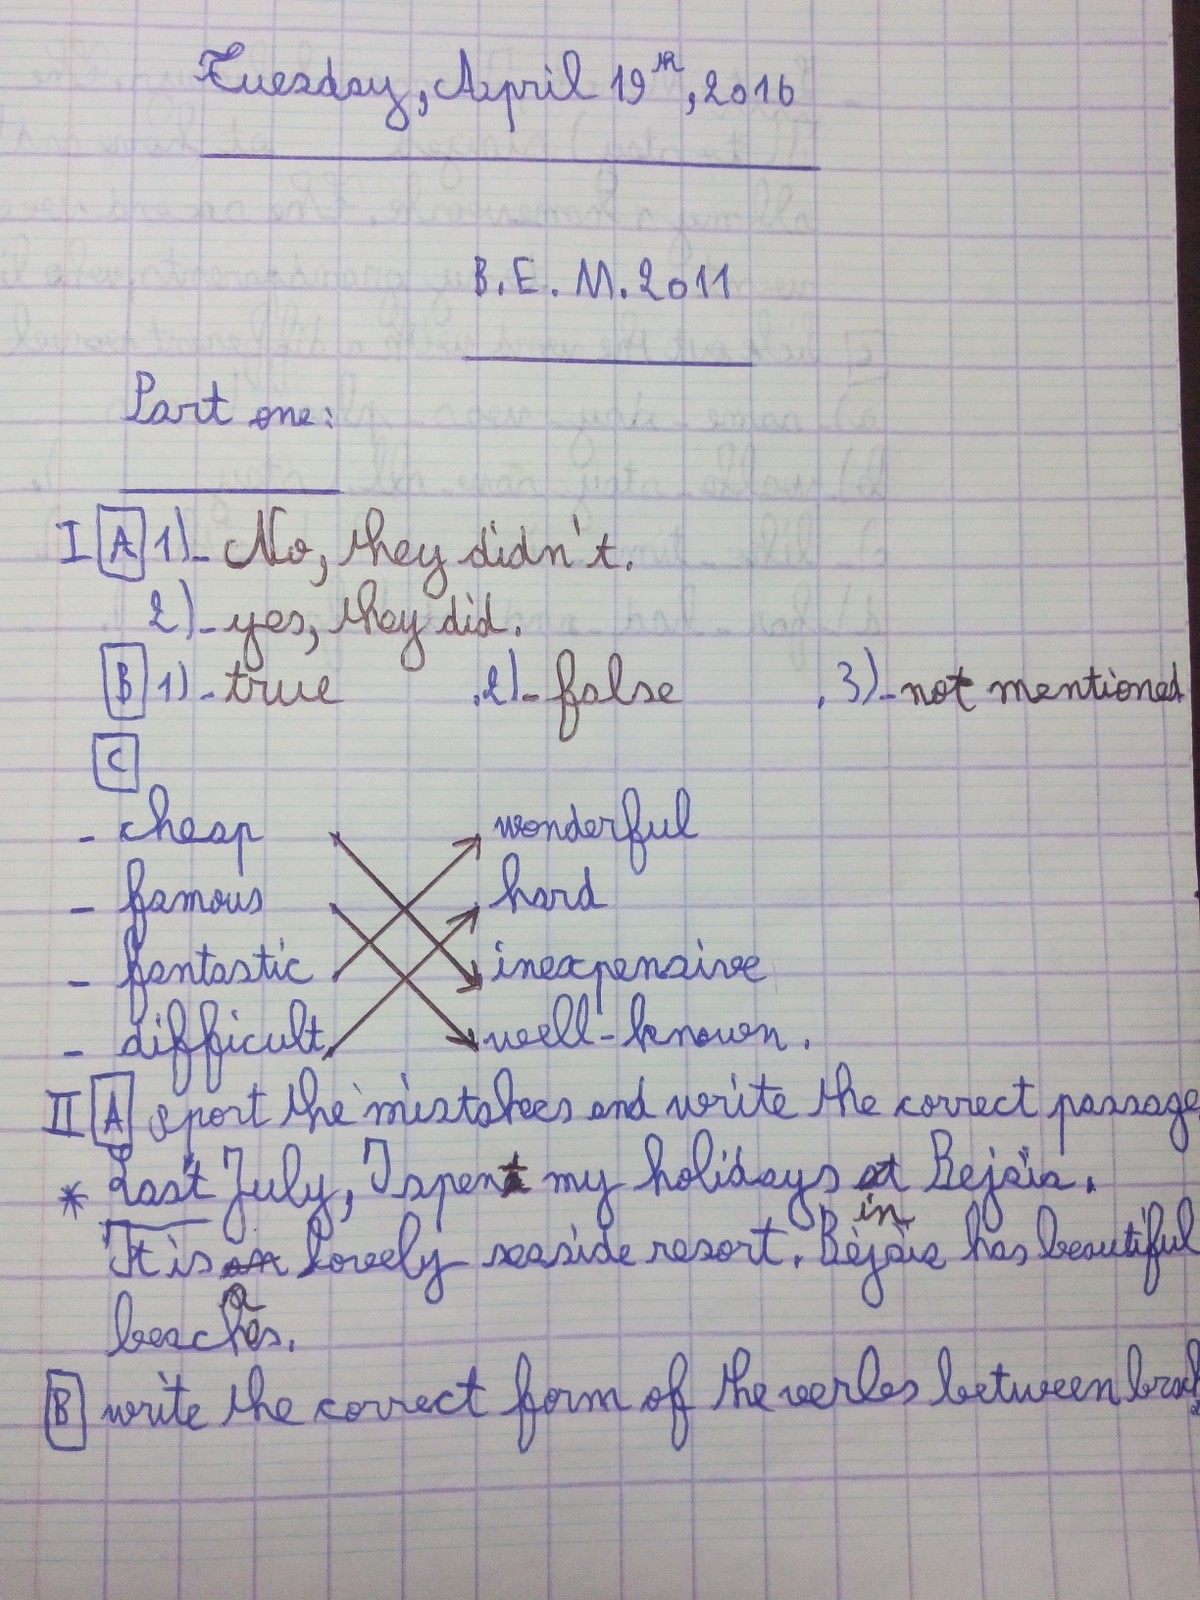 Tuesday, April 19th, 2016
B.E.M. 2011
Part one:
I A 1)- No, they didn't.
2)- yes, they did.
B 1)- true .2)- false .3)- not mentioned
C
- cheap wonderful
- famous hard
- fantastic inexpensive
- difficult well-known.
II A sport the mistakes and write the correct passage
* Last July, I spent my holidays at Bejaia.
in
It is an lovely seaside resort. Bejaia has beautiful
a
beaches.
B write the correct form of the verbs between